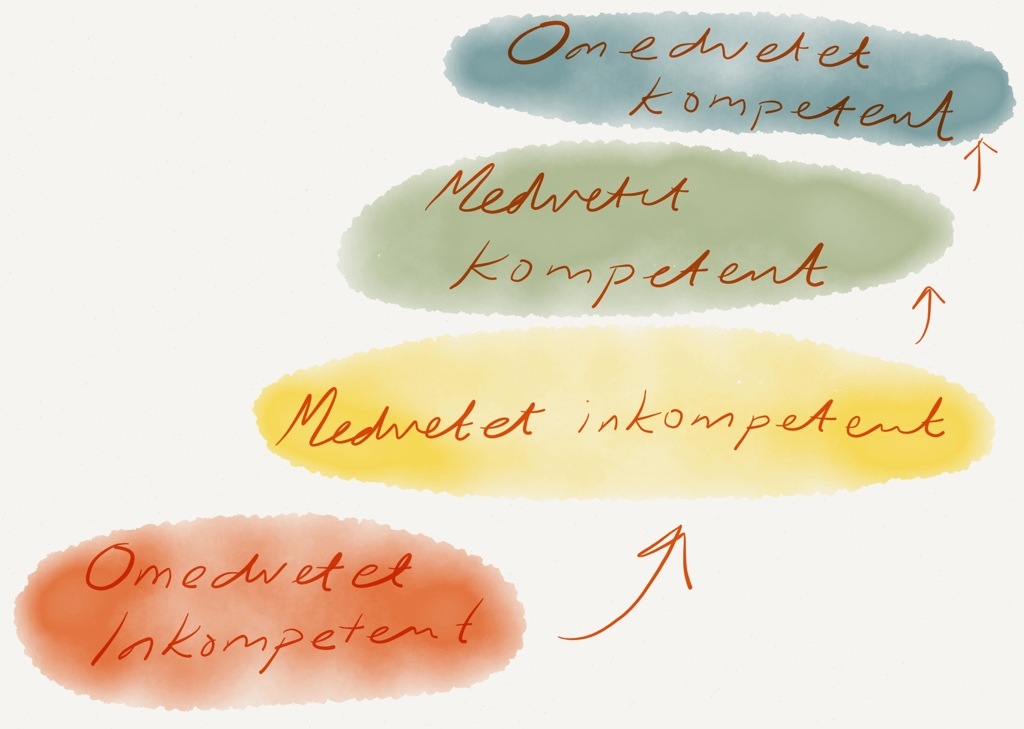 Omedvetet
kompetent
Medvetet
kompetent
Medvetet inkompetent
Omedvetet
Inkompetent